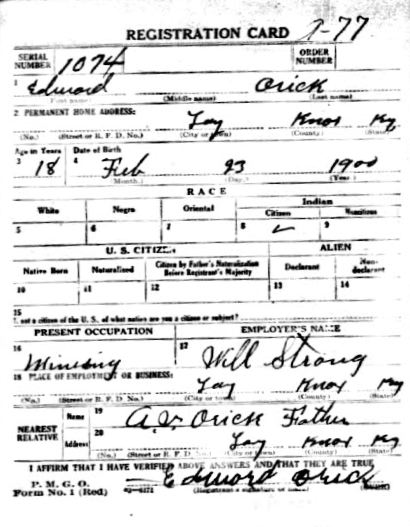 REGISTRATION CARD 7-77
SERIAL NUMBER 1074 ORDER NUMBER
1 Edward Orick
(First name) (Middle name) (Last name)
2 PERMANENT HOME ADDRESS: Lay Knox Ky
(No.) (Street or R. F. D. No.) (City or town) (County) (State)
Age in Years Date of Birth
3 18 4 Feb 23 1900
(Month.) (Day.) (Year.)
RACE
White Negro Oriental Indian
Citizen Noncitizen
5 6 7 8 ✓ 9
U. S. CITIZEN ALIEN
Native Born Naturalized Citizen by Father's Naturalization Before Registrant's Majority Declarant Non-declarant
10 11 12 13 14
15
If not a citizen of the U. S. of what nation are you a citizen or subject?
PRESENT OCCUPATION EMPLOYER'S NAME
16 Mining 17 Will Strong
18 PLACE OF EMPLOYMENT OR BUSINESS: Lay Knox Ky
(No.) (Street or R. F. D. No.) (City or town) (County) (State)
NEAREST RELATIVE Name 19 A. V. Orick Father
Address 20 Lay Knox Ky
(No.) (Street or R. F. D. No.) (City or town) (County) (State)
I AFFIRM THAT I HAVE VERIFIED ABOVE ANSWERS AND THAT THEY ARE TRUE
P. M. G. O.
Form No. 1 (Red) Edward Orick
(Registrant's signature or mark)